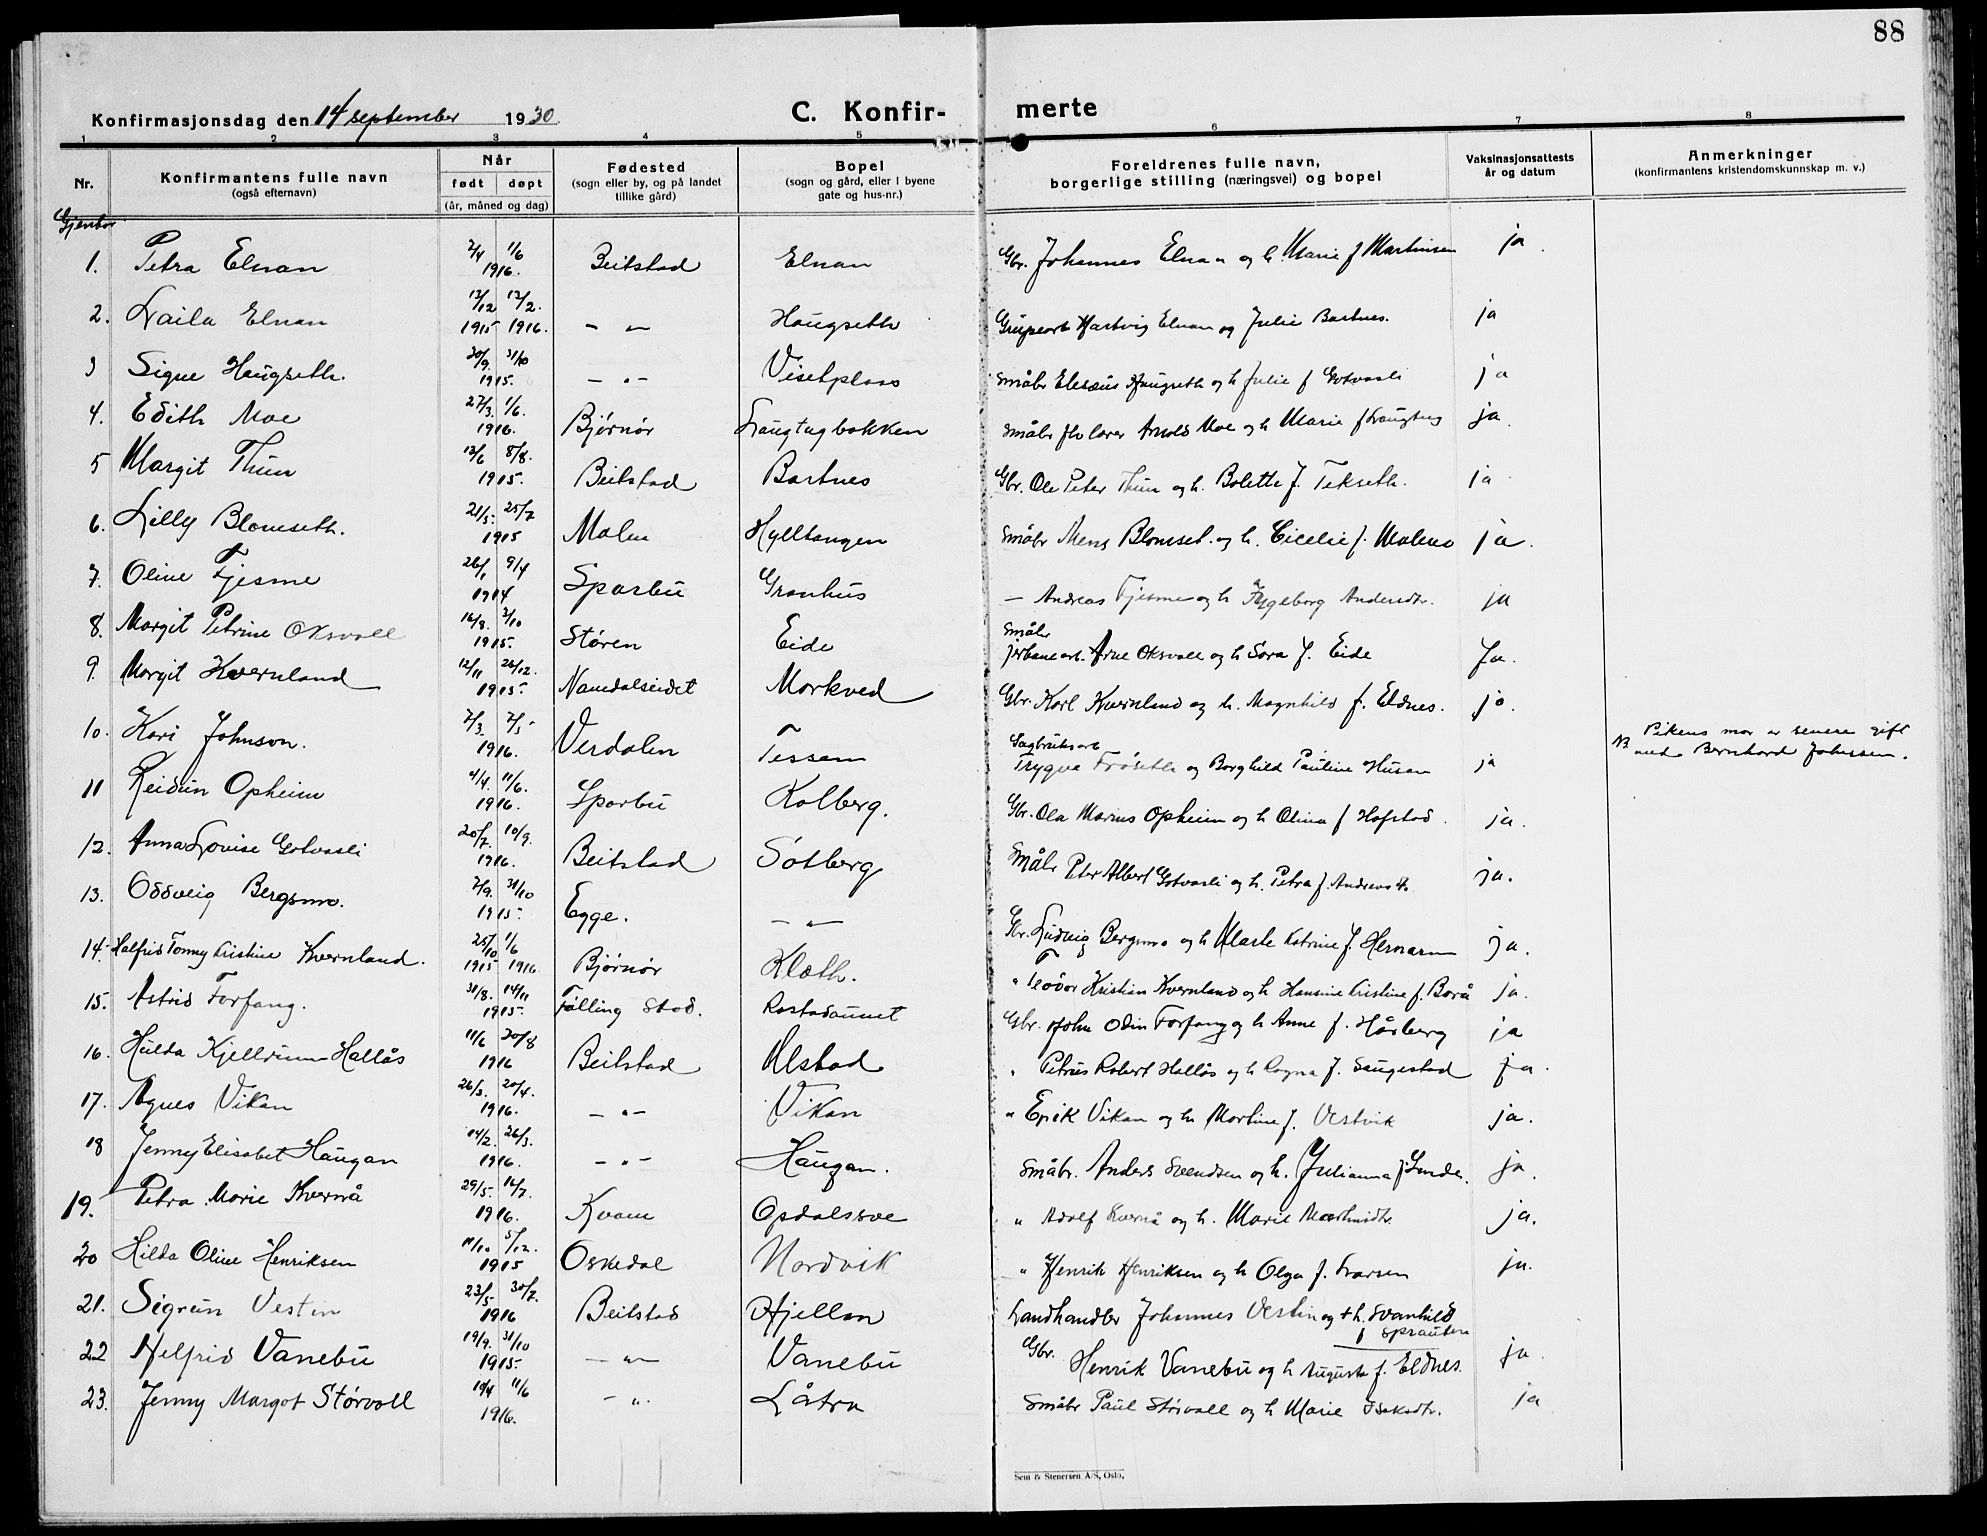 88
Konfirmasjonsdag den 14 september 1930
C. Konfir- merte
1 2 3 4 5 6 7 8
Nr.
Konfirmantens fulle navn
(også efternavn)
Når
født døpt
(år, måned og dag)
Fødested
(sogn eller by, og på landet
tillike gård)
Bopel
(sogn og gård, eller i byene
gate og hus-nr.)
Foreldrenes fulle navn,
borgerlige stilling (næringsvei) og bopel
Vaksinasjonsattests
år og datum
Anmerkninger
(konfirmantens kristendomskunnskap m. v.)
1. Petra Elnan 2/4 1/6 1916. Beitstad Elnan Gbr. Johannes Elnan og h. Marie f Martinsen ja.
2. Laila Elnan 13/12 1915 13/2. 1916. - " - Haugseth Hartvig Elnan og Julie Bartnes. ja
3 Signe Haugseth. 20/9. 31/10 1915. - " - Visetplass Småbr Eleseus Haugseth og h Julie f Gotvasli ja
4. Edith Moe 27/3. 1/6. 1916. Bjørnør Laugtugbakken Småbr Arnold Moe og h Marie f Laugtug ja.
5 Margit Thun 13/6 8/8. 1915. Beitstad Bartnes Gbr. Ole Peter Thun og h. Bolette f. Tekseth. ja
6. Lilly Blomseth. 21/5. 25/7 1915 Malm Hylltangen Småbr Mens Blomset. og h. Cicelie f. Malmo ja.
7. Oline Fjesme 26/1 9/4 1914 Sparbu Granhus — Andreas Fjesme og h Ingeborg Andersdtr. ja
8. Margit Petrine Oksvoll 16/8. 3/10 1915. Støren Eide Småbr jerbanearb. Arne Oksvoll og h Sara f. Eide Ja.
9. Margit Kvernland 12/11 26/12. 1915 Namdalseidet Morkved Gbr. Karl Kvernland og h. Magnhild f. Eldnes. ja.
10. Kari Johnson. 2/3. 7/5 1916. Verdalen Tessem Sagbruksarb Trygve Frøseth og Borghild Pauline Husan ja NB Pikens mor er senere gift med Bernhard Johnsen.
11 Reidun Opheim 4/4. 11/6. 1916. Sparbu Kolberg. Gbr. Ola Marius Opheim og h Olina f Hofstad. ja.
12. Anna Lovise Gotvasli 20/7. 10/9. 1916. Beitstad Solberg Småbr Peter Albert Gotvasli og h. Petra f. Andreasdtr. ja.
13. Oddveig Bergsmo. 2/9. 31/10 1915. Egge. - " - Gbr. Ludvig Bergsmo og h Marte Katrine f. Hermann ja.
14. Halfrid Tonny Kristine Kvernland. 25/10 1915 1/6 1916. Bjørnør Kleth. " Teodor Kristian Kvernland og h Hansine Kristine f. Borå ja.
15. Astrid Forfang. 31/8. 14/11 1915. Følling Stod. Rostadaunet Gbr. John Odin Forfang og h Anne f. Hårberg ja
16. Hulda Kjellrun Hallås 11/6 20/8 1916 Beitstad Ulstad " Petrus Robert Hallås og h Ragna f. Saugestad ja.
17. Agnes Vikan 26/3. 20/4. 1916. - " - Vikan " Erik Vikan og h Martine f. Vestvik ja.
18 Jenny Elisabet Haugan 14/2. 26/3. 1916. - " - Haugan. Småbr. Anders Svendsen og h. Julianna f Gunder. ja.
19. Petra Marie Kvernå 29/5. 16/7. 1916. Kvam Opdalssve " Adolf Kvernå og h. Marie Martinsdtr. ja.
20 Hilda Oline Henriksen 11/10 5/12. 1915 Oskedal Nordvik " Henrik Henriksen og h Olga f. Larsen ja.
21. Sigrun Vestin 23/5. 30/7. 1916 Beitstad Hjellan Landhandler Johannes Vestin og h. Svanhild f Sprauten
22 Helfrid Vanebu 19/9. 31/10 1915. - " - Vanebu Gbr. Henrik Vanebu og h Augusta f. Eldnes. ja.
23. Jenny Margot Størvoll 19/4 11/6 1916. - " - Låtra Småbr Paul Størvoll og h Marie Isaksdtr. ja
Sem & Stenersen A/S, Oslo.